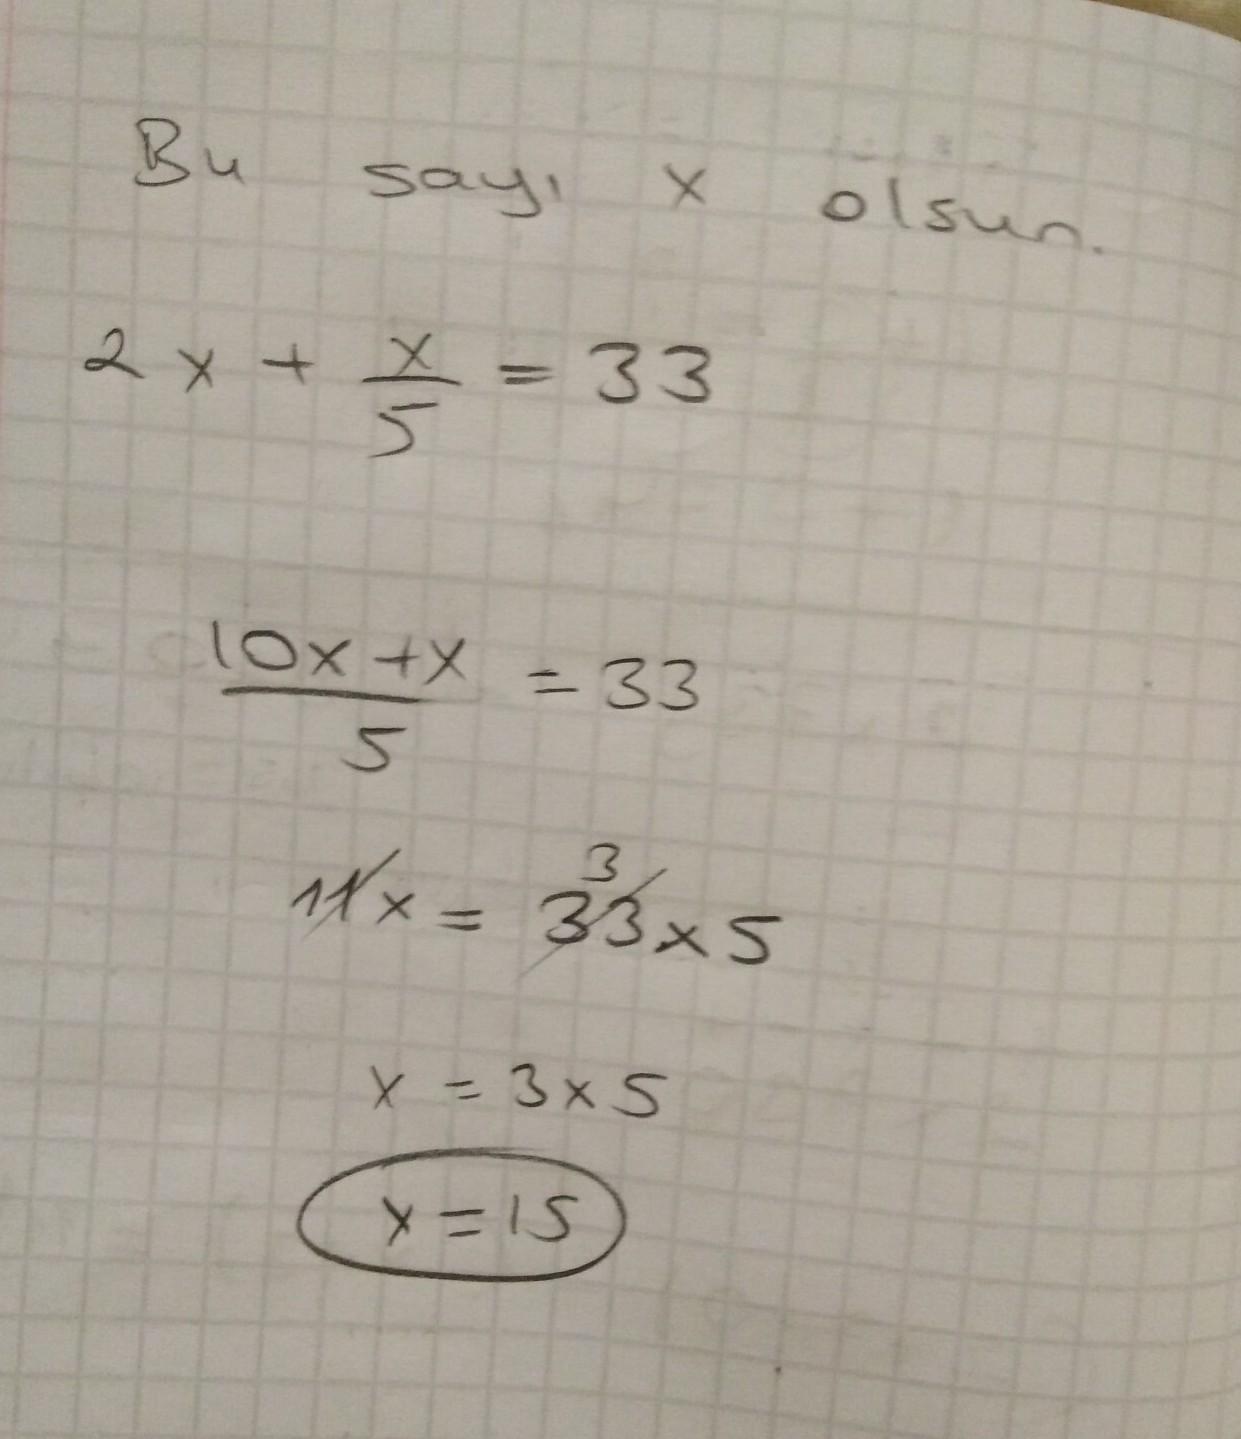 Bu sayı x olsun.
2x + x/5 = 33
10x + x / 5 = 33
11x = 33 x 5
3
x = 3 x 5
x = 15